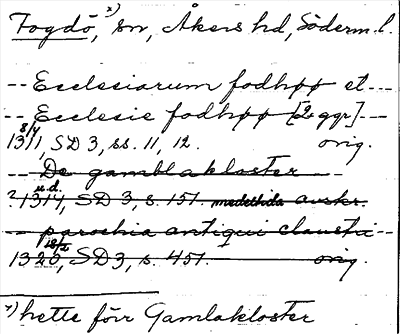 Fogdö, x) sn, Åkers hd, Söderm. l.
-- Ecclesiarum fodhøø et --
-- Ecclesie fodhøø [2 ggr] --
8/4 1311, SD 3, ss. 11, 12. orig.
-- De gamblakloster --
? u.d. 1314, SD 3, s. 151. avskr.
-- parochia antiqui claustri --
18/2 1320, SD 3, s. 451. orig.
x) hette förr Gamlakloster